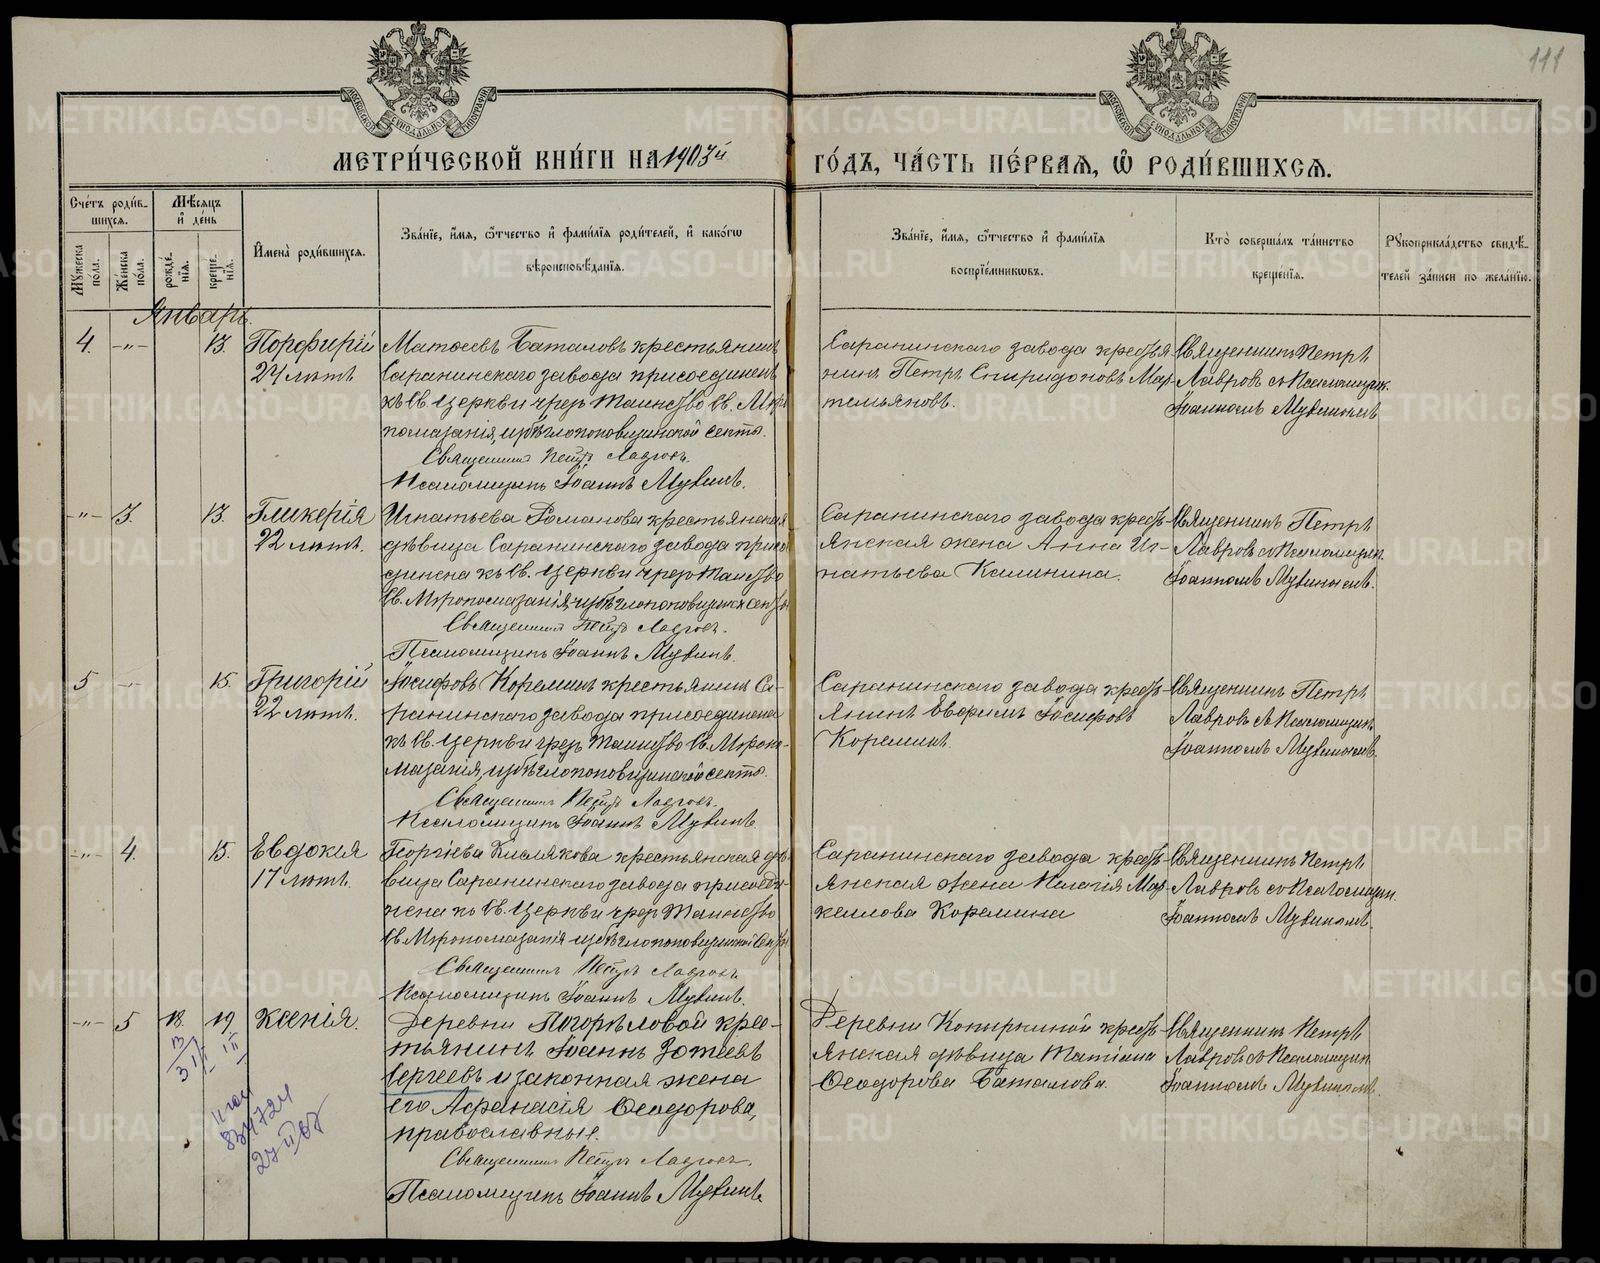 111
МЕТРИ́ЧЕСКОЙ КНИ́ГИ НА 1903й ГО́ДЪ, ЧА́СТЬ ПЕ́РВАЯ, Ѡ РОДИ́ВШИХСЯ.
Сче́тъ роди́в-
шихся.
Мѣсяцъ
и де́нь
Мужеска
по́ла.
Же́нска
по́ла.
рожде́-
нія.
креще́-
нія.
Имена̀ роди́вшихся.
Зва́ніе, и́мя, о́тчество и фами́лія роди́телей, и како́гѡ
вѣроисповѣ́данія.
Зва́ніе, и́мя, о́тчество и фами́лія
воспріе́мниковъ.
Кто̀ соверша́лъ та́инство
креще́нія.
Рукоприкла́дство свидѣ́-
телей за́писи по жела́нію.
Январь.
4. -"- 13. Порфирій
24 лѣтъ
Матѳеевъ Баталовъ крестьянинъ
Саранинскаго завода присоединенъ
къ Св. Церкви чрезъ Таинство Св. Мѵро
помазанія, изъ бѣглопоповщинской секты.
Священникъ Петръ Лавровъ.
Псаломщикъ Іоаннъ Мукинъ.
Саранинскаго завода крестья
нинъ Петръ Спиридоновъ Мар-
темьяновъ.
Священникъ Петръ
Лавровъ съ Псаломщик.
Іоанномъ Мукинымъ
-"- 3. 13. Гликерія
22 лѣтъ.
Игнатьева Романова крестьянская
дѣвица Саранинскаго завода присо
единена къ Св. Церкви чрезъ Таинство
Св. Мѵропомазанія изъ бѣглопоповщинск секты
Священникъ Петръ Лавровъ.
Псаломщикъ Іоаннъ Мукинъ.
Саранинскаго завода кресть-
янская жена Анна Иг-
натьева Калинина.
Священникъ Петръ
Лавровъ съ Псаломщик.
Іоанномъ Мукинымъ.
5 -"- 15. Григорій
22 лѣтъ.
Іосифовъ Кореминъ крестьянинъ Са-
ранинскаго завода присоединенъ
къ Св. Церкви чрезъ Таинство Св. Мѵропо-
мазанія, изъ бѣглопоповщинской секты.
Священникъ Петръ Лавровъ.
Псаломщикъ Іоаннъ Мукинъ
Саранинскаго завода кресть-
янинъ Евфимъ Іосифовъ
Кореминъ.
Священникъ Петръ
Лавровъ съ Псаломщик.
Іоанномъ Мукинымъ.
-"- 4. 15. Евдокія
17 лѣтъ.
Георгіева Кислякова крестьянская дѣ-
вица Саранинскаго завода присоеди-
нена къ Св. Церкви чрезъ Таинство
Св. Мѵропомазанія изъ бѣглопоповщинской секты
Священникъ Петръ Лавровъ.
Псаломщикъ Іоаннъ Мукинъ.
Саранинскаго завода кресть-
янская жена Пелагія Мар-
келлова Коремина
Священникъ Петръ
Лавровъ съ Псаломщик.
Іоанномъ Мукинымъ.
-"- 5 18. 19. Ксенія.
Деревни Погорѣловой крес-
тьянинъ Іоаннъ Зотеевъ
Сергеевъ и законная жена
его Аѳанасія Ѳеодорова,
православные.
Священникъ Петръ Лавровъ.
Псаломщикъ Іоаннъ Мукинъ
Деревни Копыркиной кресть-
янская дѣвица Татіана
Ѳеодорова Баталова.
Священникъ Петръ
Лавровъ съ Псаломщик
Іоанномъ Мукинымъ.